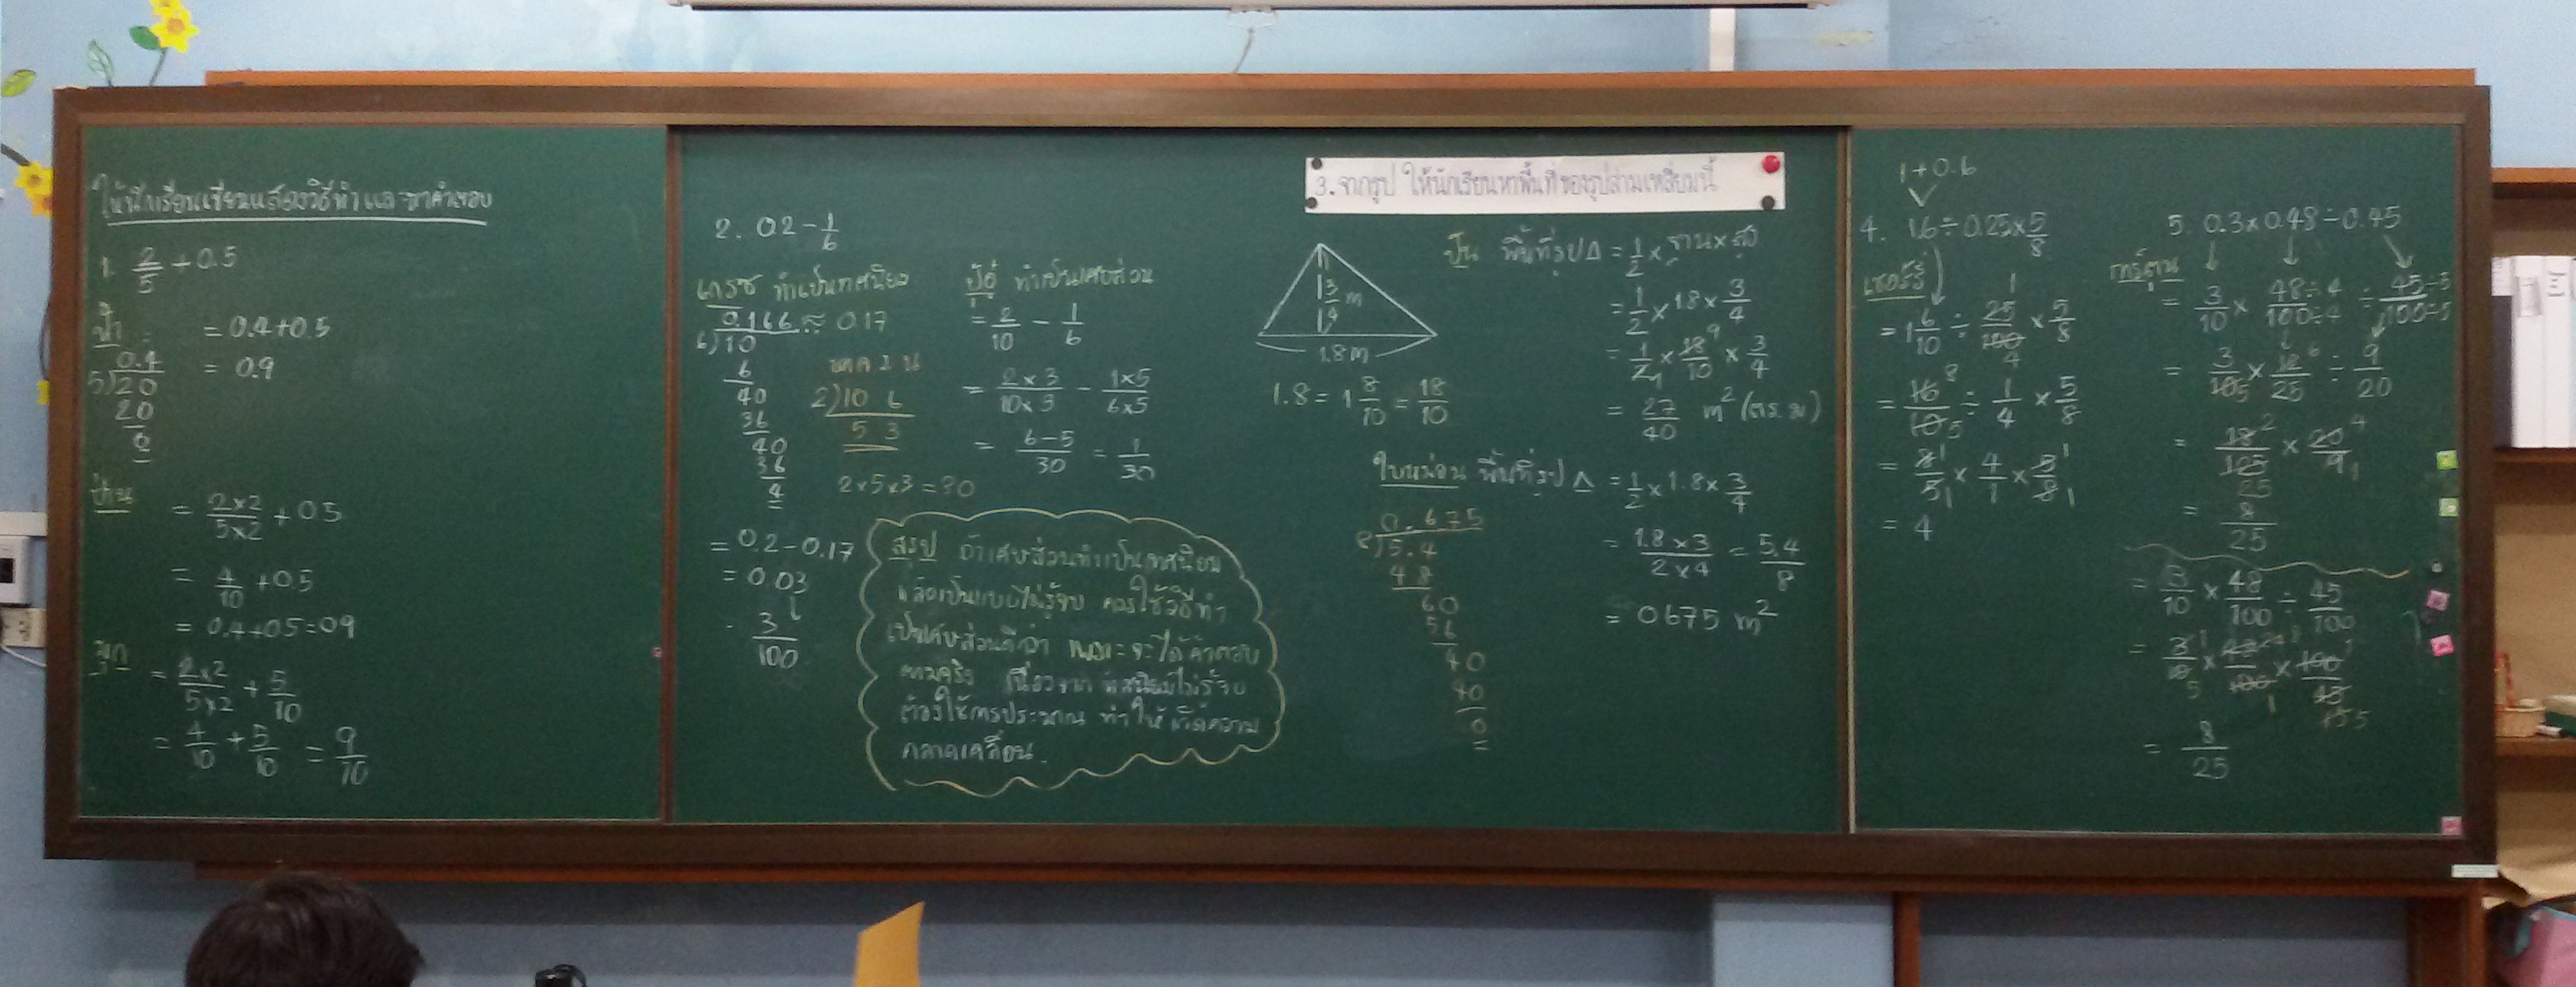 ให้นักเรียนเขียนแสดงวิธีทำและหาคำตอบ
1. 2/5 + 0.5
ฟ้า : = 0.4+0.5
= 0.9
0.4
5)20
20
0
ป่าน
= 2×2/5×2 + 0.5
= 4/10 + 0.5
= 0.4+0.5=0.9
มุก
= 2×2/5×2 + 5/10
= 4/10 + 5/10 = 9/10
2. 0.2 - 1/6
เกรซ ทำเป็นทศนิยม
0.166 ≈ 0.17
6)10
6
40
36
40
36
4
= 0.2-0.17
= 0.03
3/100
หา ค.ร.น
2)10 6
5 3
2×5×3=30
ทำเป็นเศษส่วน
= 2/10 - 1/6
= 2×3/10×3 - 1×5/6×5
= 6-5/30 = 1/30
สรุป ถ้าเศษส่วนทำเป็นทศนิยม
แล้วเป็นแบบไม่รู้จบ ควรใช้วิธีทำ
เป็นเศษส่วนดีกว่า เพราะจะได้คำตอบ
ตามจริง เนื่องจากทศนิยมไม่รู้จบ
ต้องใช้การประมาณ ทำให้เกิดความ
คลาดเคลื่อน.
3. จากรูป ให้นักเรียนหาพื้นที่ของรูปสามเหลี่ยมนี้
3/4 m
1.8 m
1.8 = 1 8/10 = 18/10
ปุ่น พื้นที่รูป Δ = 1/2 × ฐาน × สูง
= 1/2 × 1.8 × 3/4
= 1/2 1 × 18 9/10 × 3/4
= 27/40 m² (ตร.ม)
ใบหม่อน พื้นที่รูป Δ = 1/2 × 1.8 × 3/4
= 1.8×3/2×4 = 5.4/8
= 0.675 m²
0.675
8)5.4
4 8
60
56
40
40
0
1+0.6
4. 1.6÷0.25×5/8
เชอร์รี่
= 1 6/10 ÷ 25 1/100 4 × 5/8
= 16 8/10 5 ÷ 1/4 × 5/8
= 8 1/5 1 × 4/1 × 5 1/8 1
= 4
5. 0.3×0.48÷0.45
การ์ตูน
= 3/10 × 48÷4/100÷4 ÷ 45÷5/100÷5
= 3/10 5 × 12 6/25 ÷ 9/20
= 18 2/125 25 × 20 4/9 1
= 8/25
= 3/10 × 48/100 ÷ 45/100
= 8/25